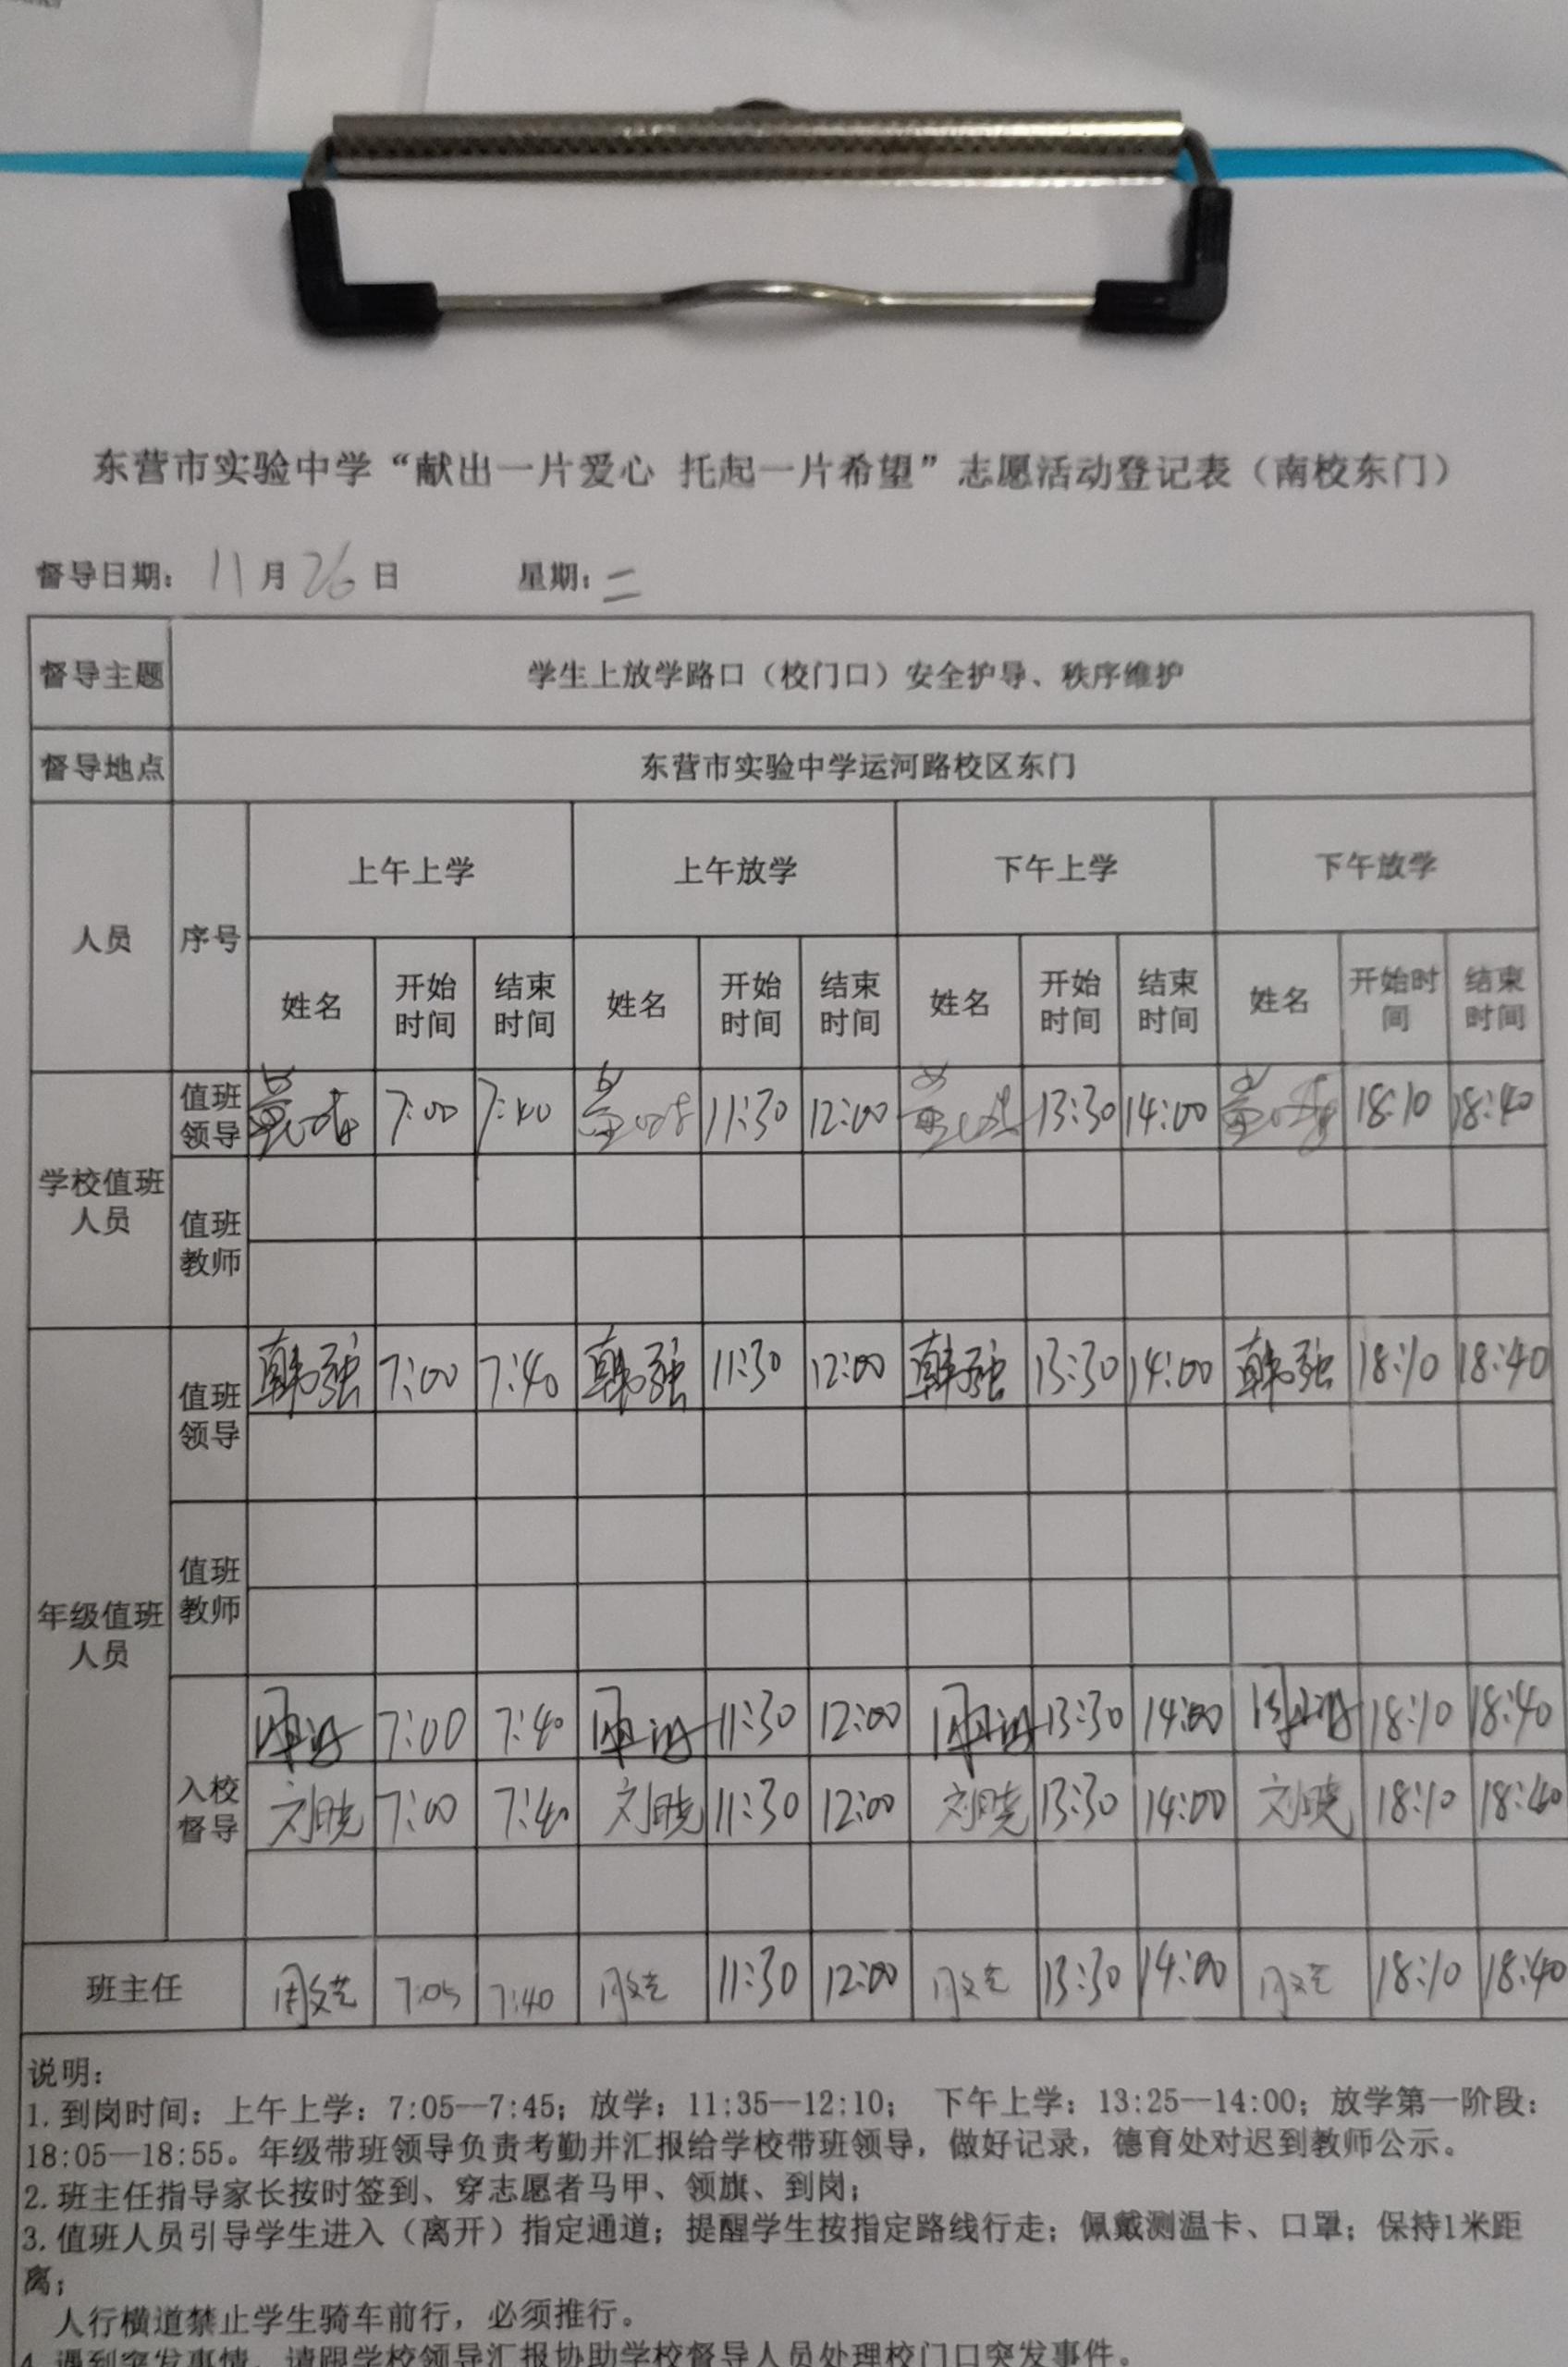 东营市实验中学“献出一片爱心 托起一片希望”志愿活动登记表（南校东门）
督导日期： 11 月 26 日 星期：二
督导主题 学生上放学路口（校门口）安全护导、秩序维护
督导地点 东营市实验中学运河路校区东门
人员 序号 上午上学 上午放学 下午上学 下午放学
姓名 开始时间 结束时间 姓名 开始时间 结束时间 姓名 开始时间 结束时间 姓名 开始时间 结束时间
学校值班人员 值班领导 7:00 7:40 11:30 12:00 13:30 14:00 18:10 18:40
值班教师
年级值班人员 值班领导 韩强 7:00 7:40 韩强 11:30 12:00 韩强 13:30 14:00 韩强 18:10 18:40
值班教师
入校督导 7:00 7:40 11:30 12:00 13:30 14:00 18:10 18:40
刘晓 7:00 7:40 刘晓 11:30 12:00 刘晓 13:30 14:00 刘晓 18:10 18:40
班主任 周文艺 7:05 7:40 周文艺 11:30 12:00 周文艺 13:30 14:00 周文艺 18:10 18:40
说明：
1. 到岗时间：上午上学：7:05—7:45；放学；11:35—12:10； 下午上学：13:25—14:00；放学第一阶段：
18:05—18:55。年级带班领导负责考勤并汇报给学校带班领导，做好记录，德育处对迟到教师公示。
2. 班主任指导家长按时签到、穿志愿者马甲、领旗、到岗；
3. 值班人员引导学生进入（离开）指定通道；提醒学生按指定路线行走；佩戴测温卡、口罩；保持1米距
离；
人行横道禁止学生骑车前行，必须推行。
4. 遇到突发事情，请跟学校领导汇报协助学校督导人员处理校门口突发事件。